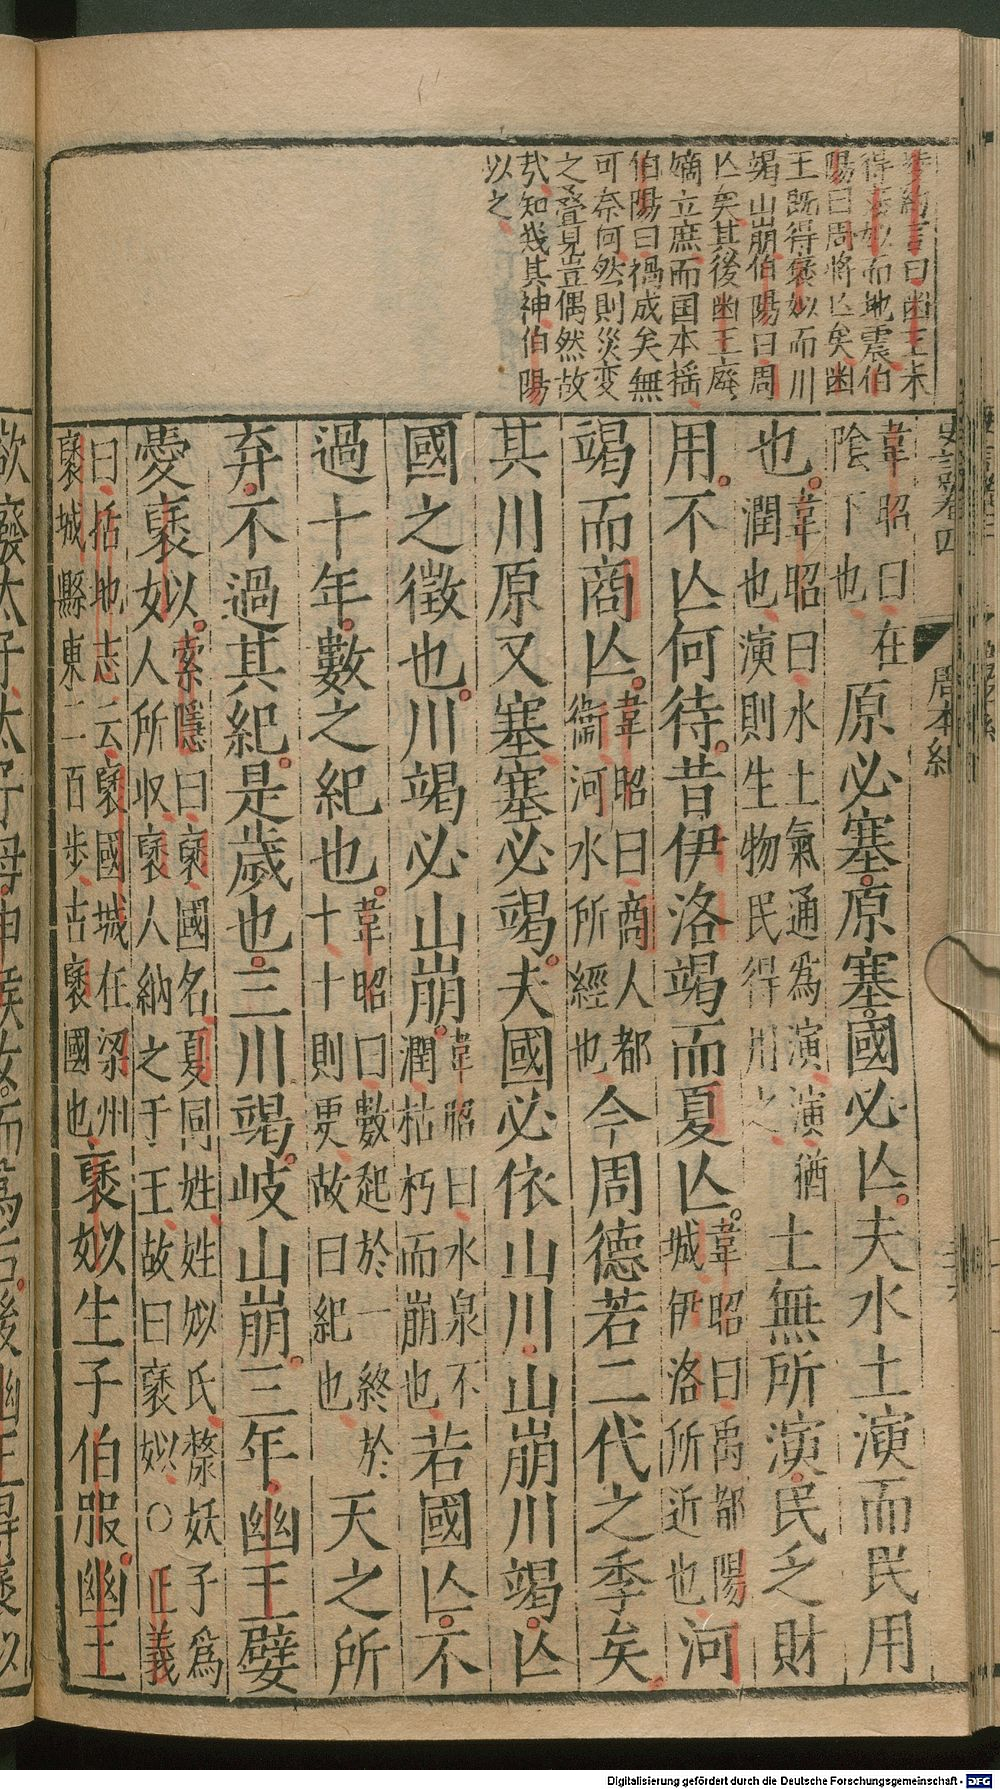 黎納言曰幽王未
得褒姒而地震伯
陽曰周將亾矣幽
王既得褒姒而川
竭山崩伯陽曰周
亾矣其後幽王廢
嫡立庶而国本摇
伯陽曰禍成矣無
可奈何然則災变
之叠見豈偶然故
㢤知幾其神伯陽
以之
史記卷四 周本紀
韋昭曰在
陰下也
原必塞原塞國必亾夫水土演而民用
也
韋昭曰水土氣通為演演猶
潤也演則生物民得用之
土無所演民乏財
用不亾何待昔伊洛竭而夏亾
韋昭曰禹都陽
城伊洛所近也
河
竭而商亾
韋昭曰商人都
衞河水所經也
今周德若二代之季矣
其川原又塞塞必竭夫國必依山川山崩川竭亾
國之徵也川竭必山崩
韋昭曰水泉不
潤枯朽而崩也
若國亾不
過十年數之紀也
韋昭曰數起於一終於
十十則更故曰紀也
天之所
弃不過其紀是歲也三川竭岐山崩三年幽王嬖
愛褒姒
索隱曰褒國名夏同姓姓姒氏漦妖子爲
人所收褒人納之于王故曰褒姒〇正義
曰括地志云褒國城在梁州
褒城縣東二百步古褒國也
褒姒生子伯服幽王
欲廢太子太子母申侯女而爲后後幽王得褒姒
Digitalisierung gefördert durch die Deutsche Forschungsgemeinschaft - DFG